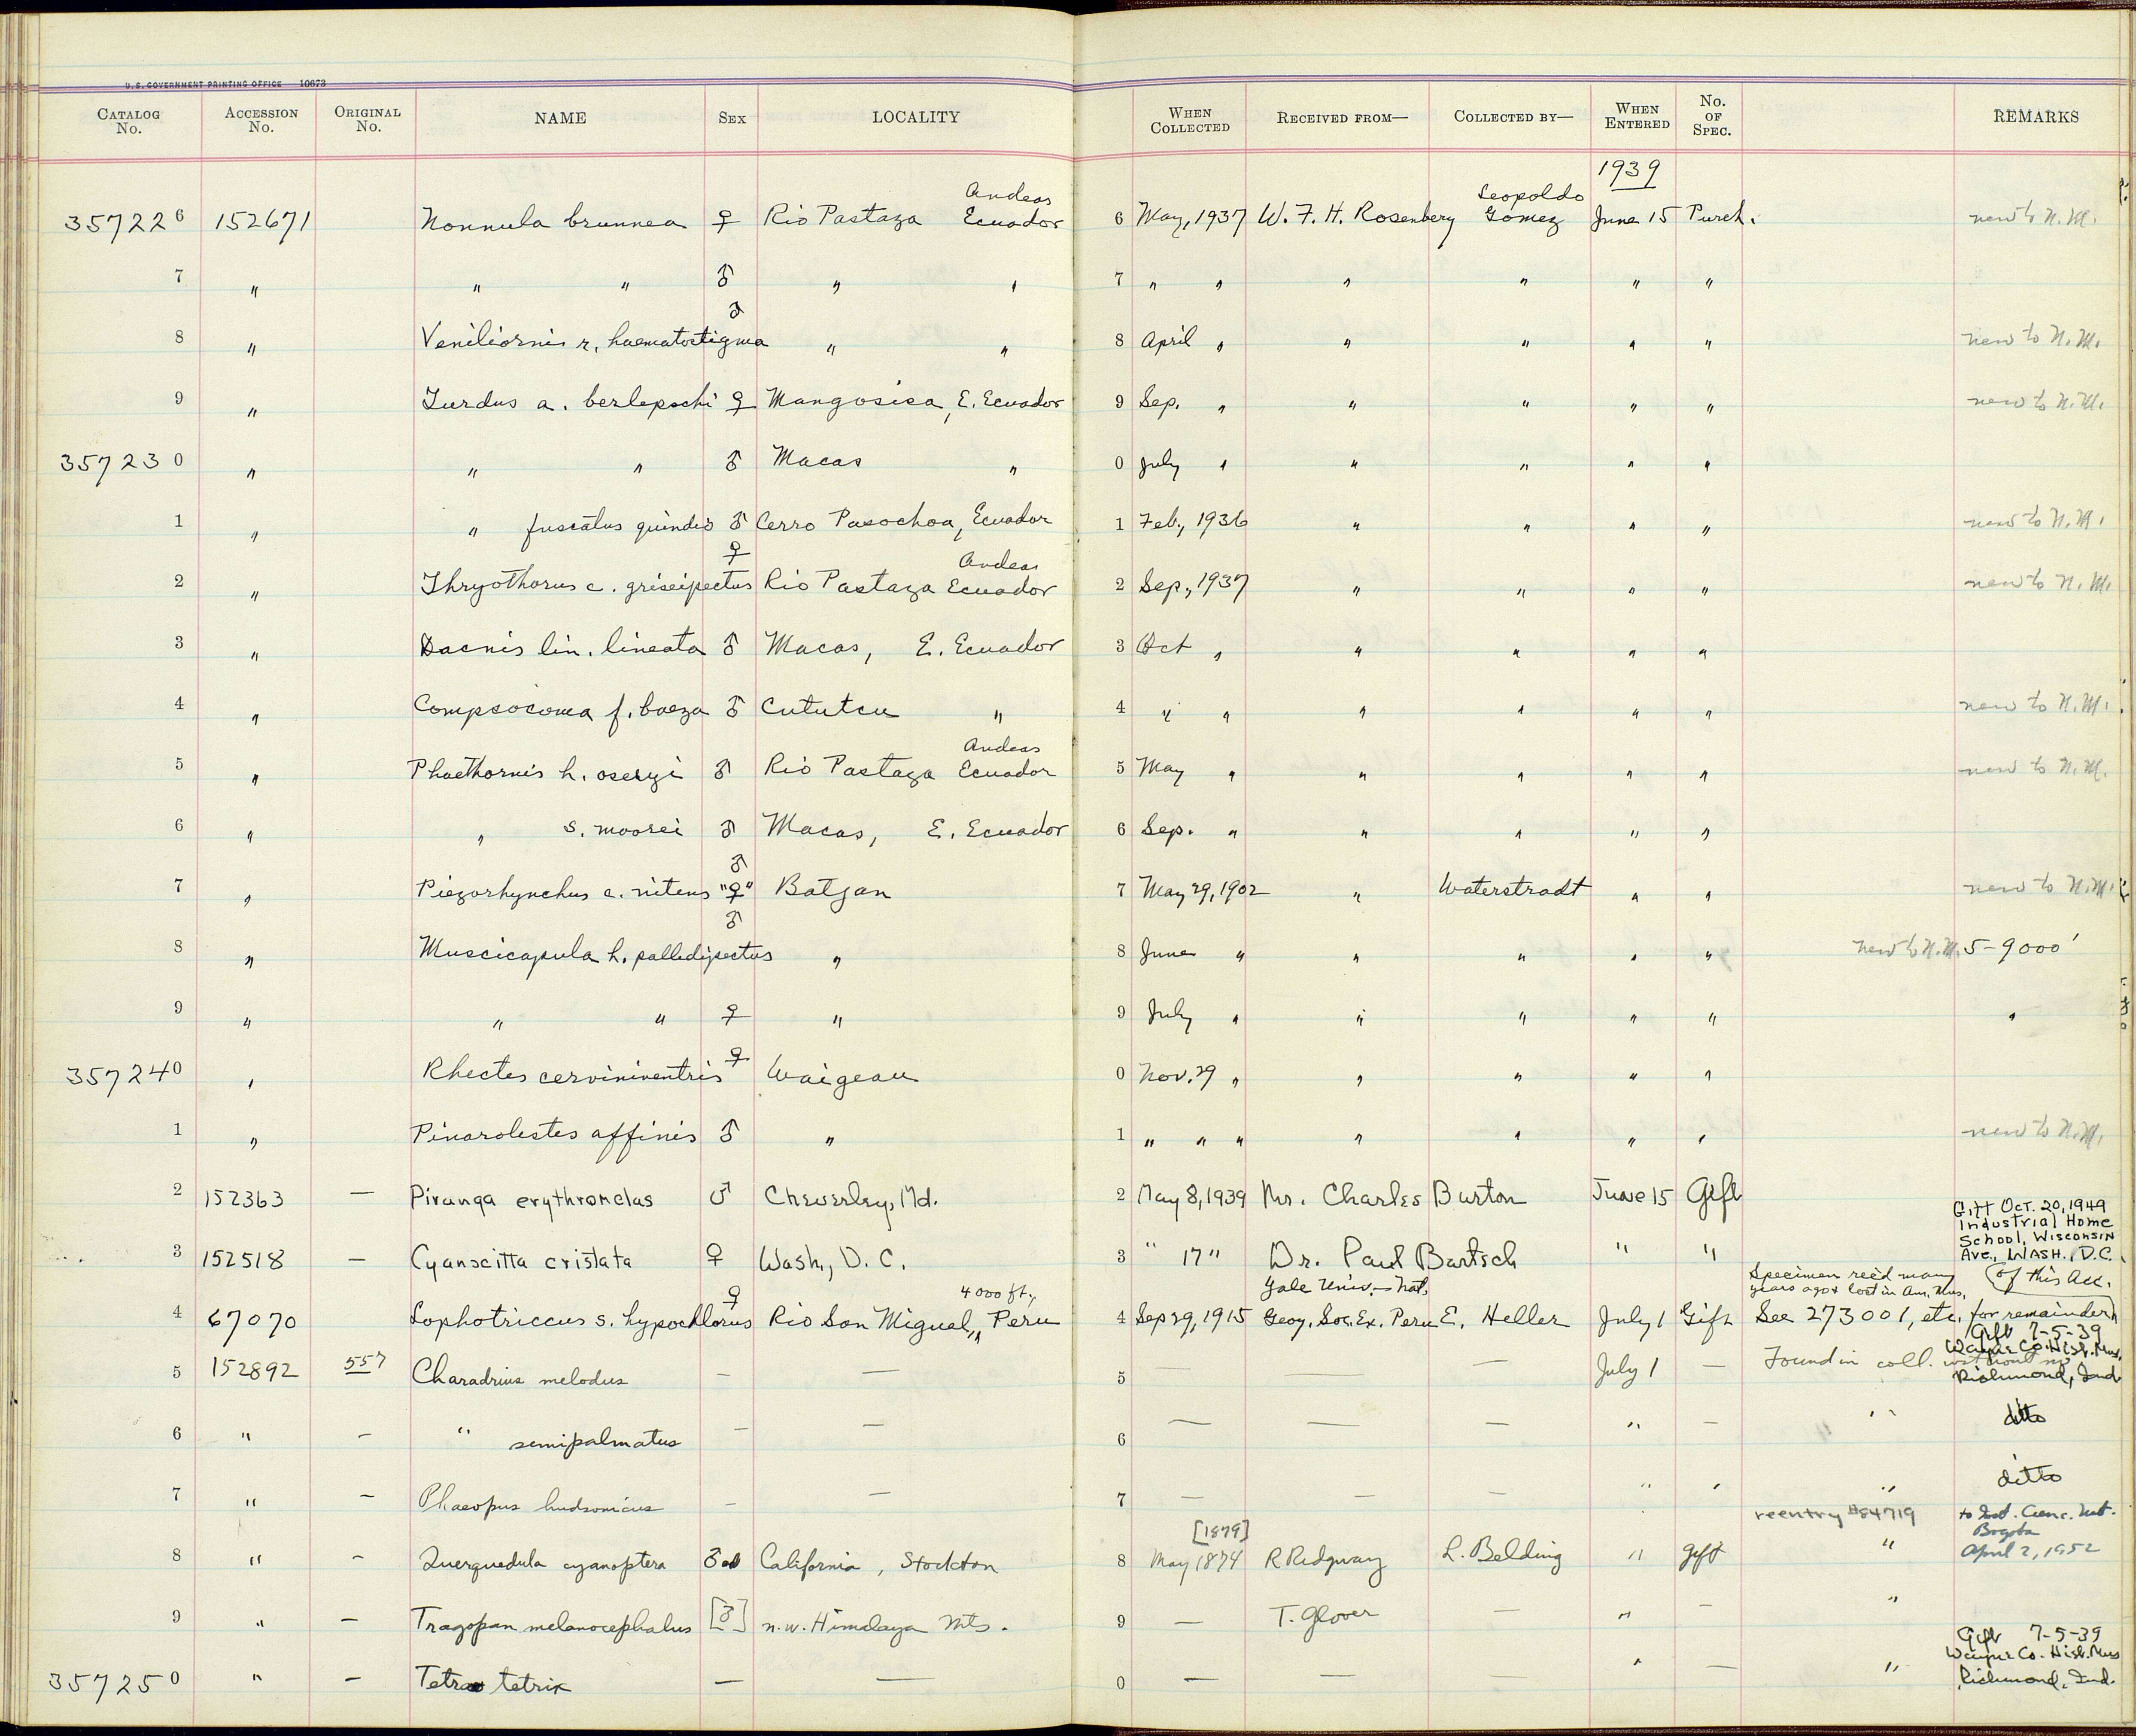 U.S. GOVERNMENT PRINTING OFFICE 10673
CATALOG No. ACCESSION No. ORIGINAL No. NAME SEX LOCALITY WHEN COLLECTED RECEIVED FROM— COLLECTED BY— WHEN ENTERED No. OF SPEC. REMARKS
1939
357226 152671 Nonnula brunnea ♀ Rio Pastaza Andeas Ecuador 6 May, 1937 W. F. H. Rosenberg Leopoldo Gomez June 15 Purch. new to N.M.
7 " " " ♂ " " 7 " " " " " "
8 " Veniliornis r. haematostigma ♂ " " 8 April " " " " " new to N.M.
9 " Turdus a. berlepschi ♀ Mangosisa, E. Ecuador 9 Sep. " " " " " new to N.M.
357230 " " " ♂ Macas " 0 July " " " " "
1 " " fuscatus quindio ♂ Cerro Pasochoa, Ecuador 1 Feb., 1936 " " " " new to N.M.
2 " Thryothorus c. griseipectus ♀ Rio Pastaza Andeas Ecuador 2 Sep., 1937 " " " " new to N.M.
3 " Dacnis lin. lineata ♂ Macas, E. Ecuador 3 Oct " " " " "
4 " Compsocoma f. baeza ♂ Cututcu " 4 " " " " " " new to N.M.
5 " Phaethornis h. oseryi ♂ Rio Pastaza Andeas Ecuador 5 May " " " " " new to N.M.
6 " " s. moorei ♂ Macas, E. Ecuador 6 Sep. " " " " "
7 " Piezorhynchus c. nitens ♂ "♀" Batjan 7 May 29, 1902 " Waterstradt " " new to N.M.
8 " Muscicapula h. pallidipectus ♂ " 8 June " " " " " new to N.M. 5-9000'
9 " " " ♀ " 9 July " " " " " "
357240 " Rhectes cerviniventris ♀ Waigeau 0 Nov. 29 " " " " "
1 " Pinarolestes affinis ♂ " 1 " " " " " " " new to N.M.
2 152363 — Piranga erythromelas ♂ Cheverley, Md. 2 May 8, 1939 Mr. Charles Burton June 15 Gift
Gift Oct. 20, 1949
Industrial Home
School, Wisconsin
Ave., Wash. D.C.
3 152518 — Cyanocitta cristata ♀ Wash., D.C. 3 " 17 " Dr. Paul Bartsch " "
Specimen rec'd many years ago & lost in Am. Mus.
(of this Acc.
4 67070 Lophotriccus s. hypochlorus ♀ Rio San Miguel, 4000 ft., Peru 4 Sep 29, 1915 Yale Univ.—Nat. Geog. Soc. Ex. Peru E. Heller July 1 Gift See 273001, etc. for remainder
Gift 7-5-39
Wayne Co. Hist. Mus.
Richmond, Ind.
5 152892 557 Charadrius melodus — — 5 — — — July 1 — Found in coll. without no
6 " — " semipalmatus — — 6 — — — " — " ditto
7 " — Phaeopus hudsonicus — — 7 — — — " " " ditto
reentry #84719
to Inst. Cienc. Nat.
Bogota
April 2, 1952
8 " — Querquedula cyanoptera ♂ ad California, Stockton 8 [1879] May 1874 R Ridgway L. Belding " gift "
9 " — Tragopan melanocephalus [♂] n.w. Himalaya Mts. 9 — T. Glover — " — "
Gift 7-5-39
Wayne Co. Hist. Mus
Richmond, Ind.
357250 " — Tetrao tetrix — — 0 — — — " — "